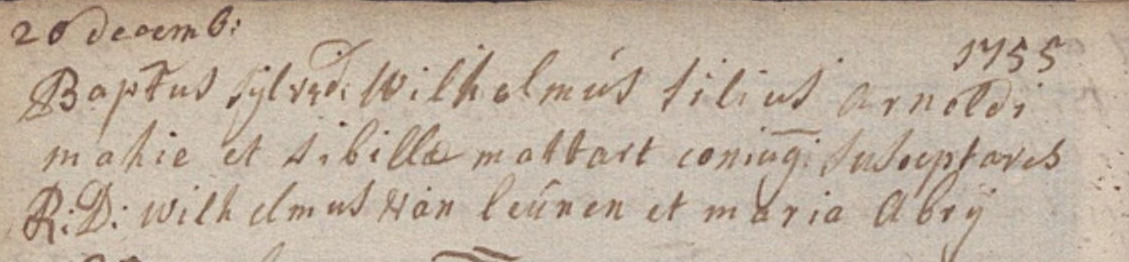 20 decemb:
1755
Baptus Wilhelmus filius Arnoldi
mahie et sibillæ mattart coniugi: susceptores
R: D: wilhelmus van leúnen et maria Abrÿ